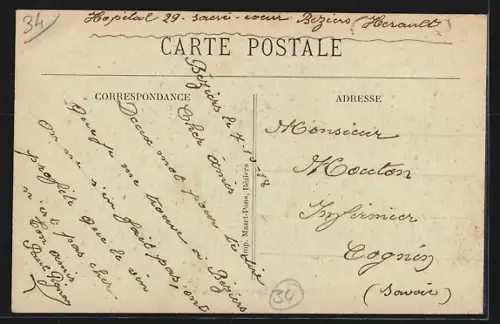 34
Hopital 29. sacré-coeur Béziers (Herault)
CARTE POSTALE
CORRESPONDANCE
ADRESSE
Béziers le 7.10-18
Cher amis
Deux mot pour te dire
que je me trouve a Béziers
on ne s'en fait pas, ont
profite que le vin
n'est pas cher.
Ton amis
Paul
Imp. Mazet-Pons, Béziers
Monsieur
Mouton
Infirmier
Cognin
(Savoie)
34